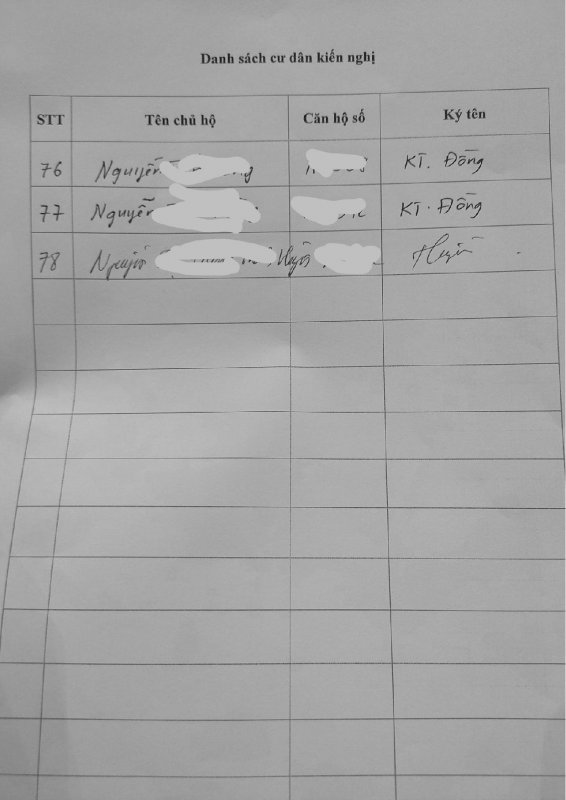 Danh sách cư dân kiến nghị
STT Tên chủ hộ Căn hộ số Ký tên
76 Nguyễn KT. Đồng
77 Nguyễn KT. Đồng
78 Nguyễn